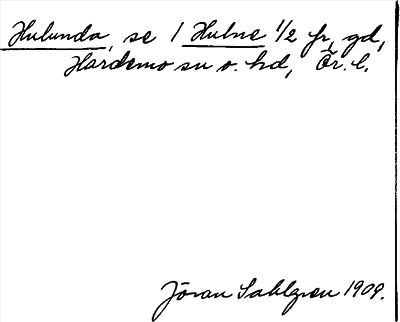 Hulunda, se 1 Hulne 1/2 fr, gd,
Hardemo sn o. hd, Ör. l.
Jöran Sahlgren 1909.